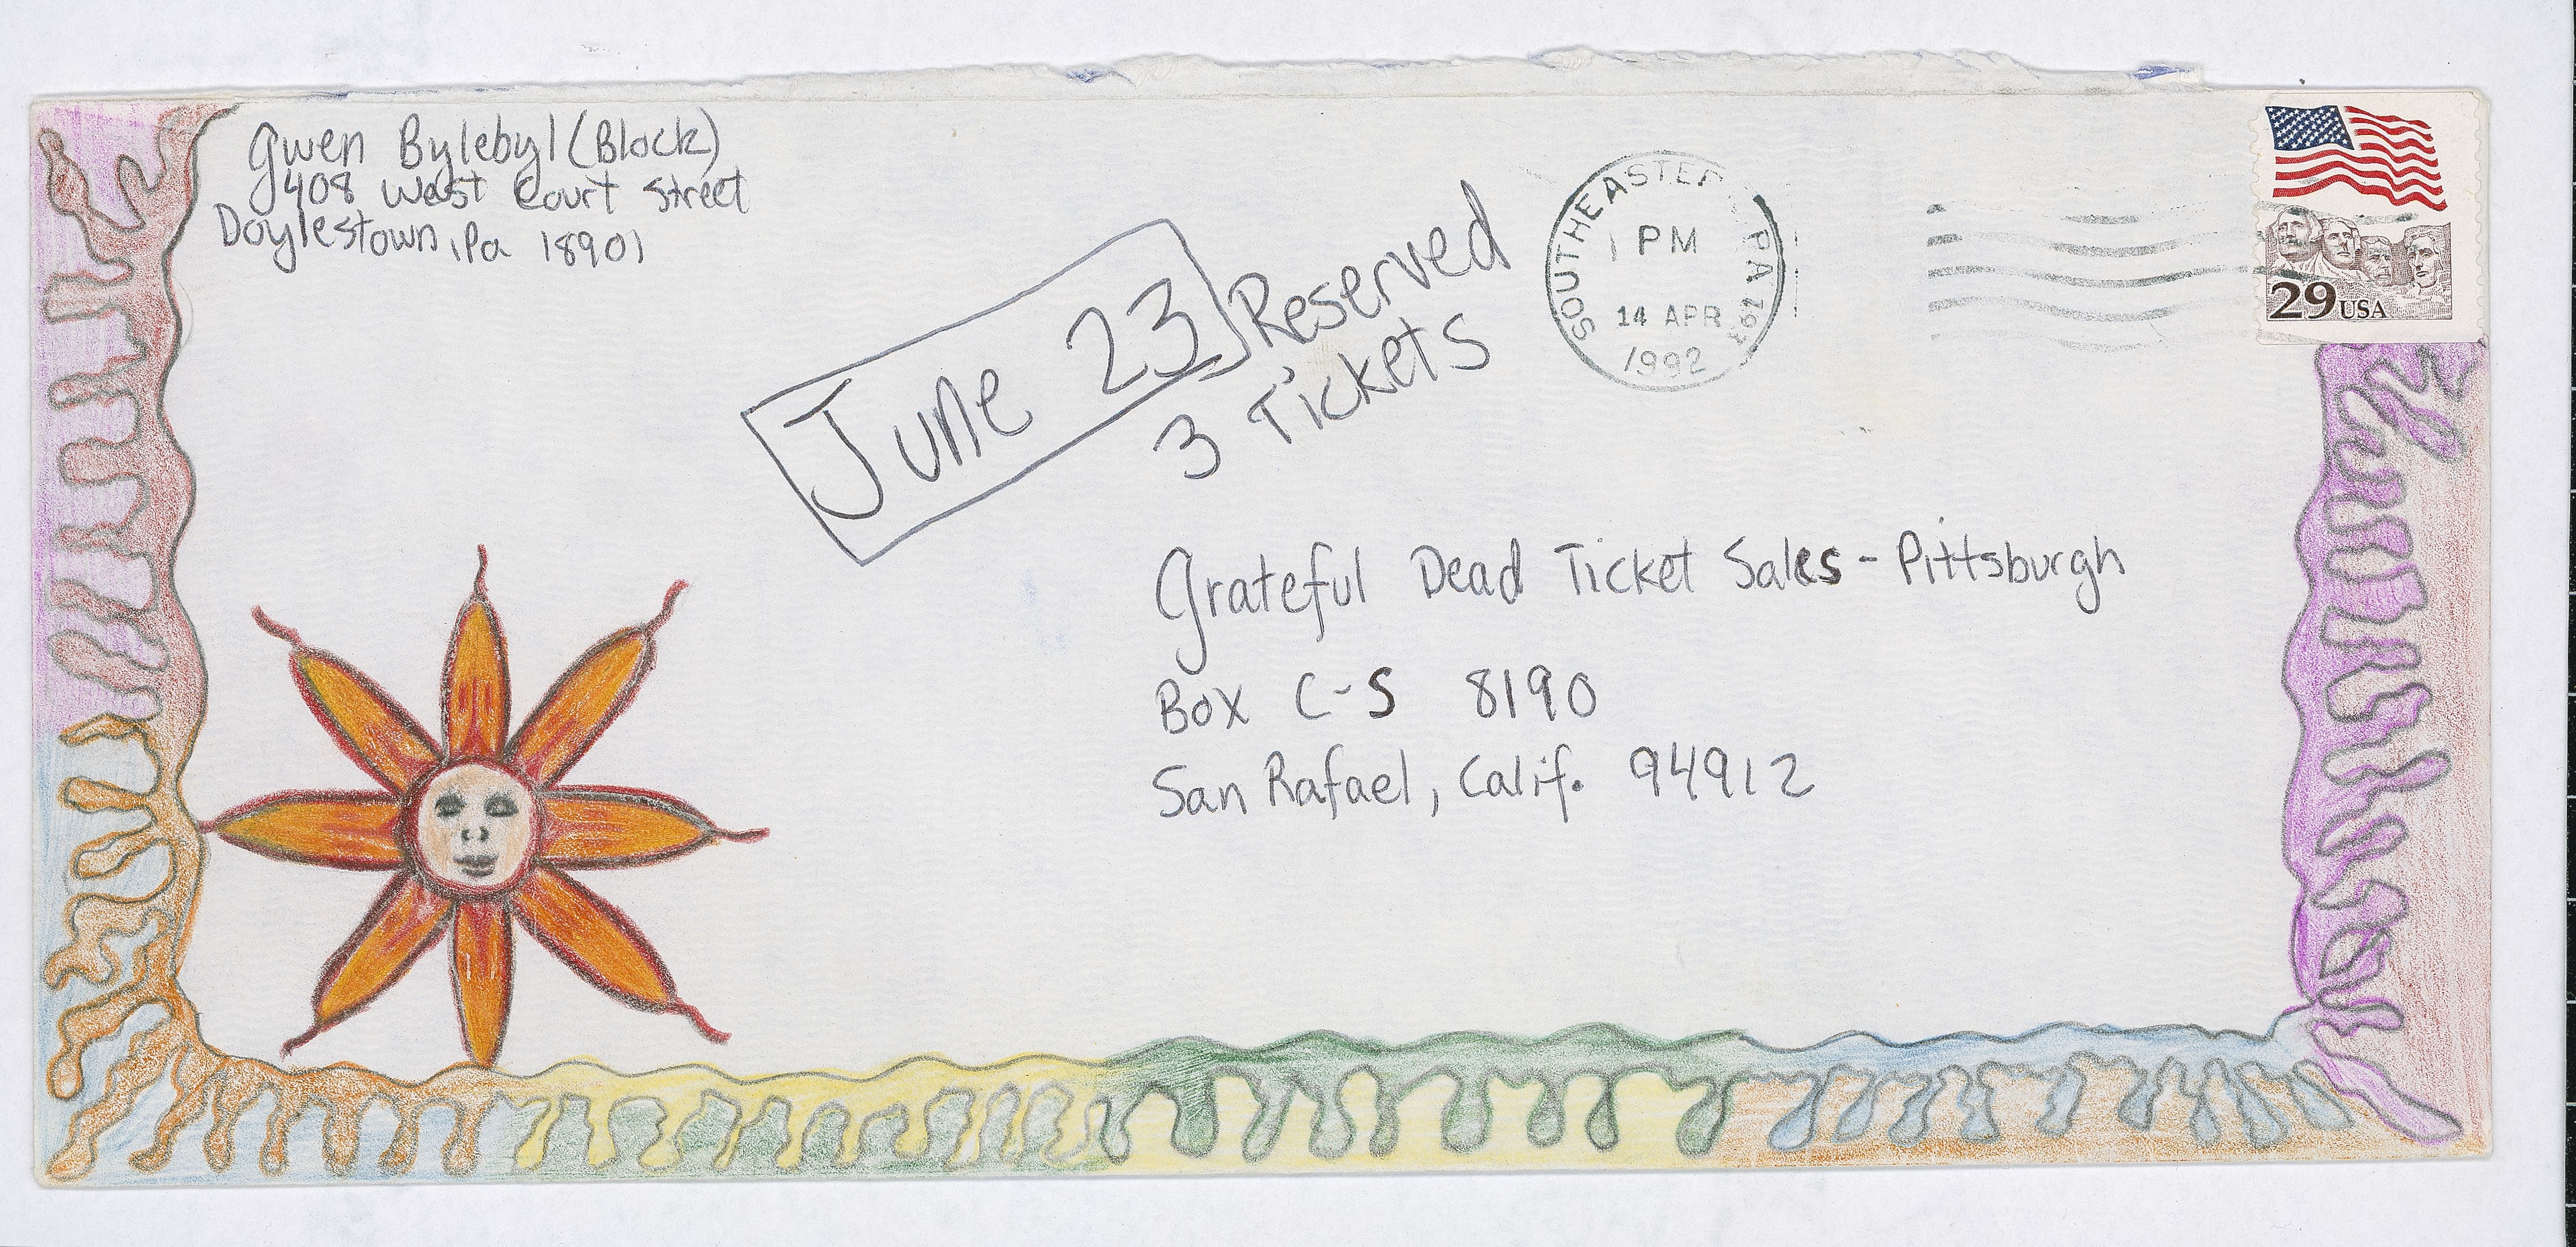 Gwen Bylebyl (Block)
408 West Court Street
Doylestown, Pa 18901
June 23 Reserved
3 Tickets
SOUTHEASTER PA 193
PM
14 APR
1992
29 USA
Grateful Dead Ticket Sales - Pittsburgh
Box C-S 8190
San Rafael, Calif. 94912